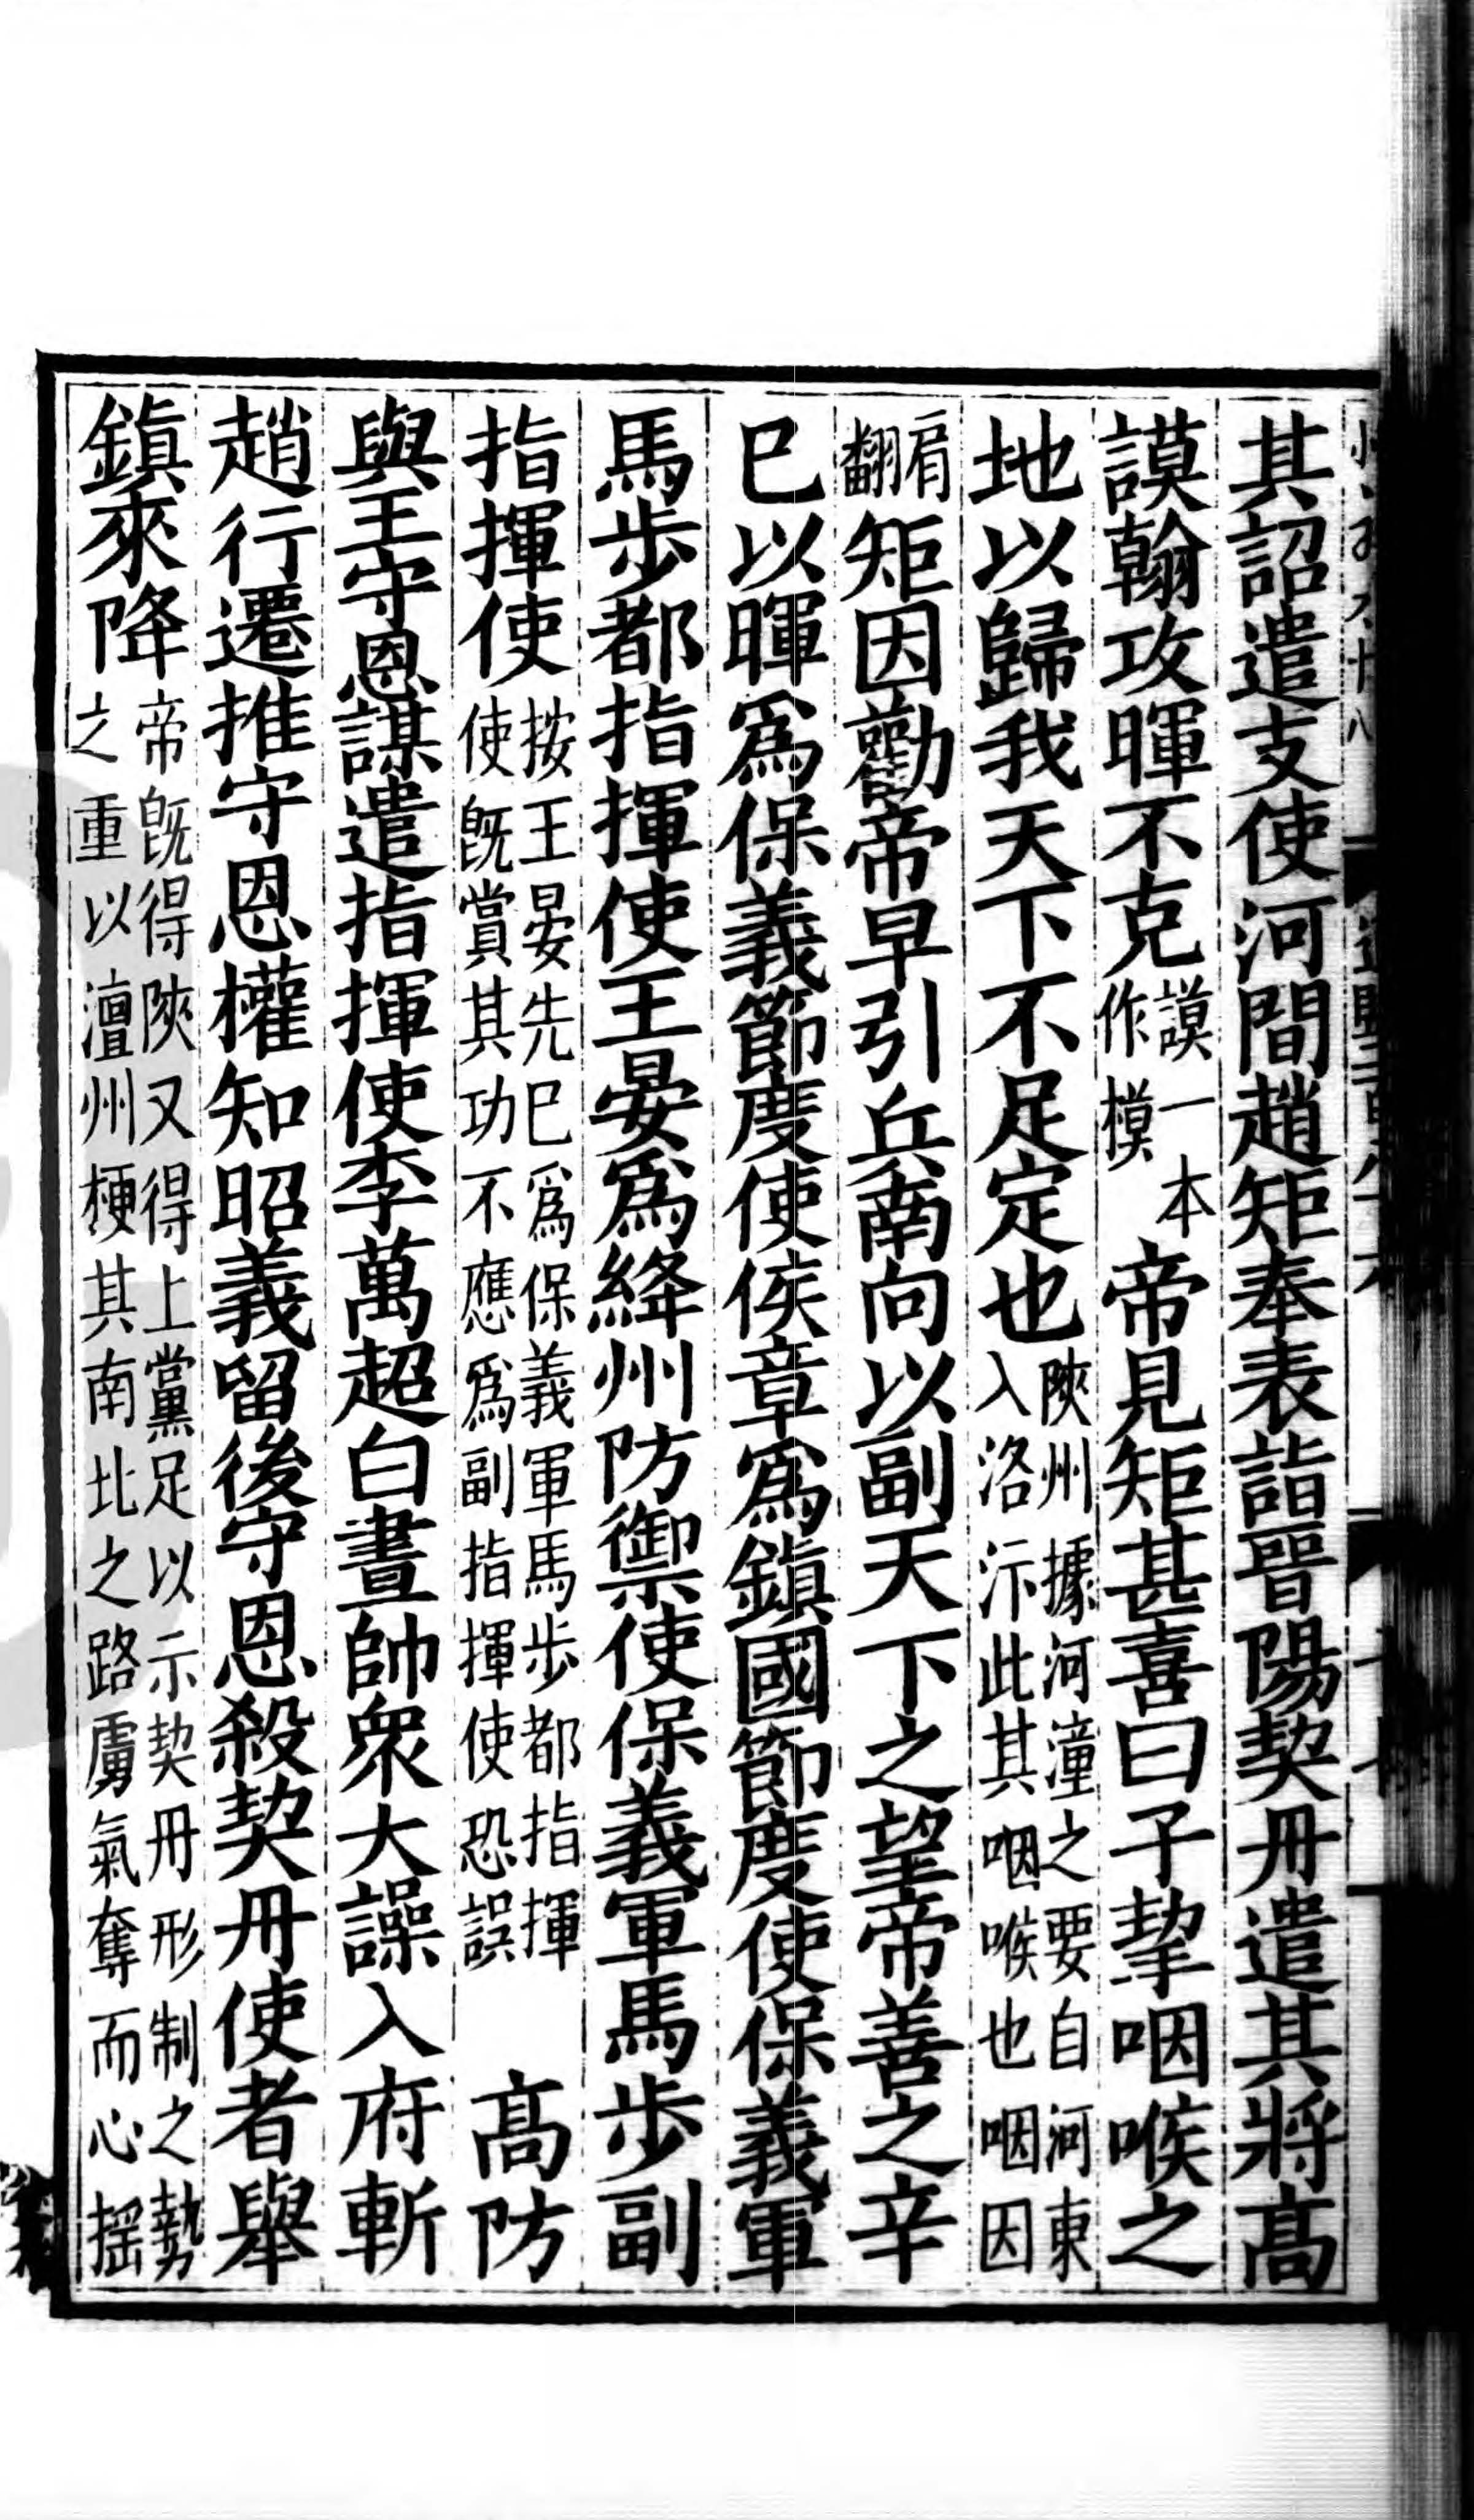 其詔遣支使河間趙矩奉表詣晉陽契丹遣其將髙
謨翰攻暉不克謨一本作模帝見矩甚喜曰子挈咽喉之
地以歸我天下不足定也陜州據河潼之要自河東入洛汴此其咽喉也咽因
肩翻矩因勸帝早引兵南向以副天下之望帝善之辛
巳以暉爲保義節度使侯章爲鎮國節度使保義軍
馬步都指揮使王晏爲絳州防禦使保義軍馬步副
指揮使按王晏先巳爲保義軍馬步都指揮使旣賞其功不應爲副指揮使恐誤髙防
與王守恩謀遣指揮使李萬超白晝帥衆大譟入府斬
趙行遷推守恩權知昭義留後守恩殺契丹使者舉
鎮來降帝旣得陜又得上黨足以示契丹形制之勢之重以澶州梗其南北之路虜氣奪而心揺